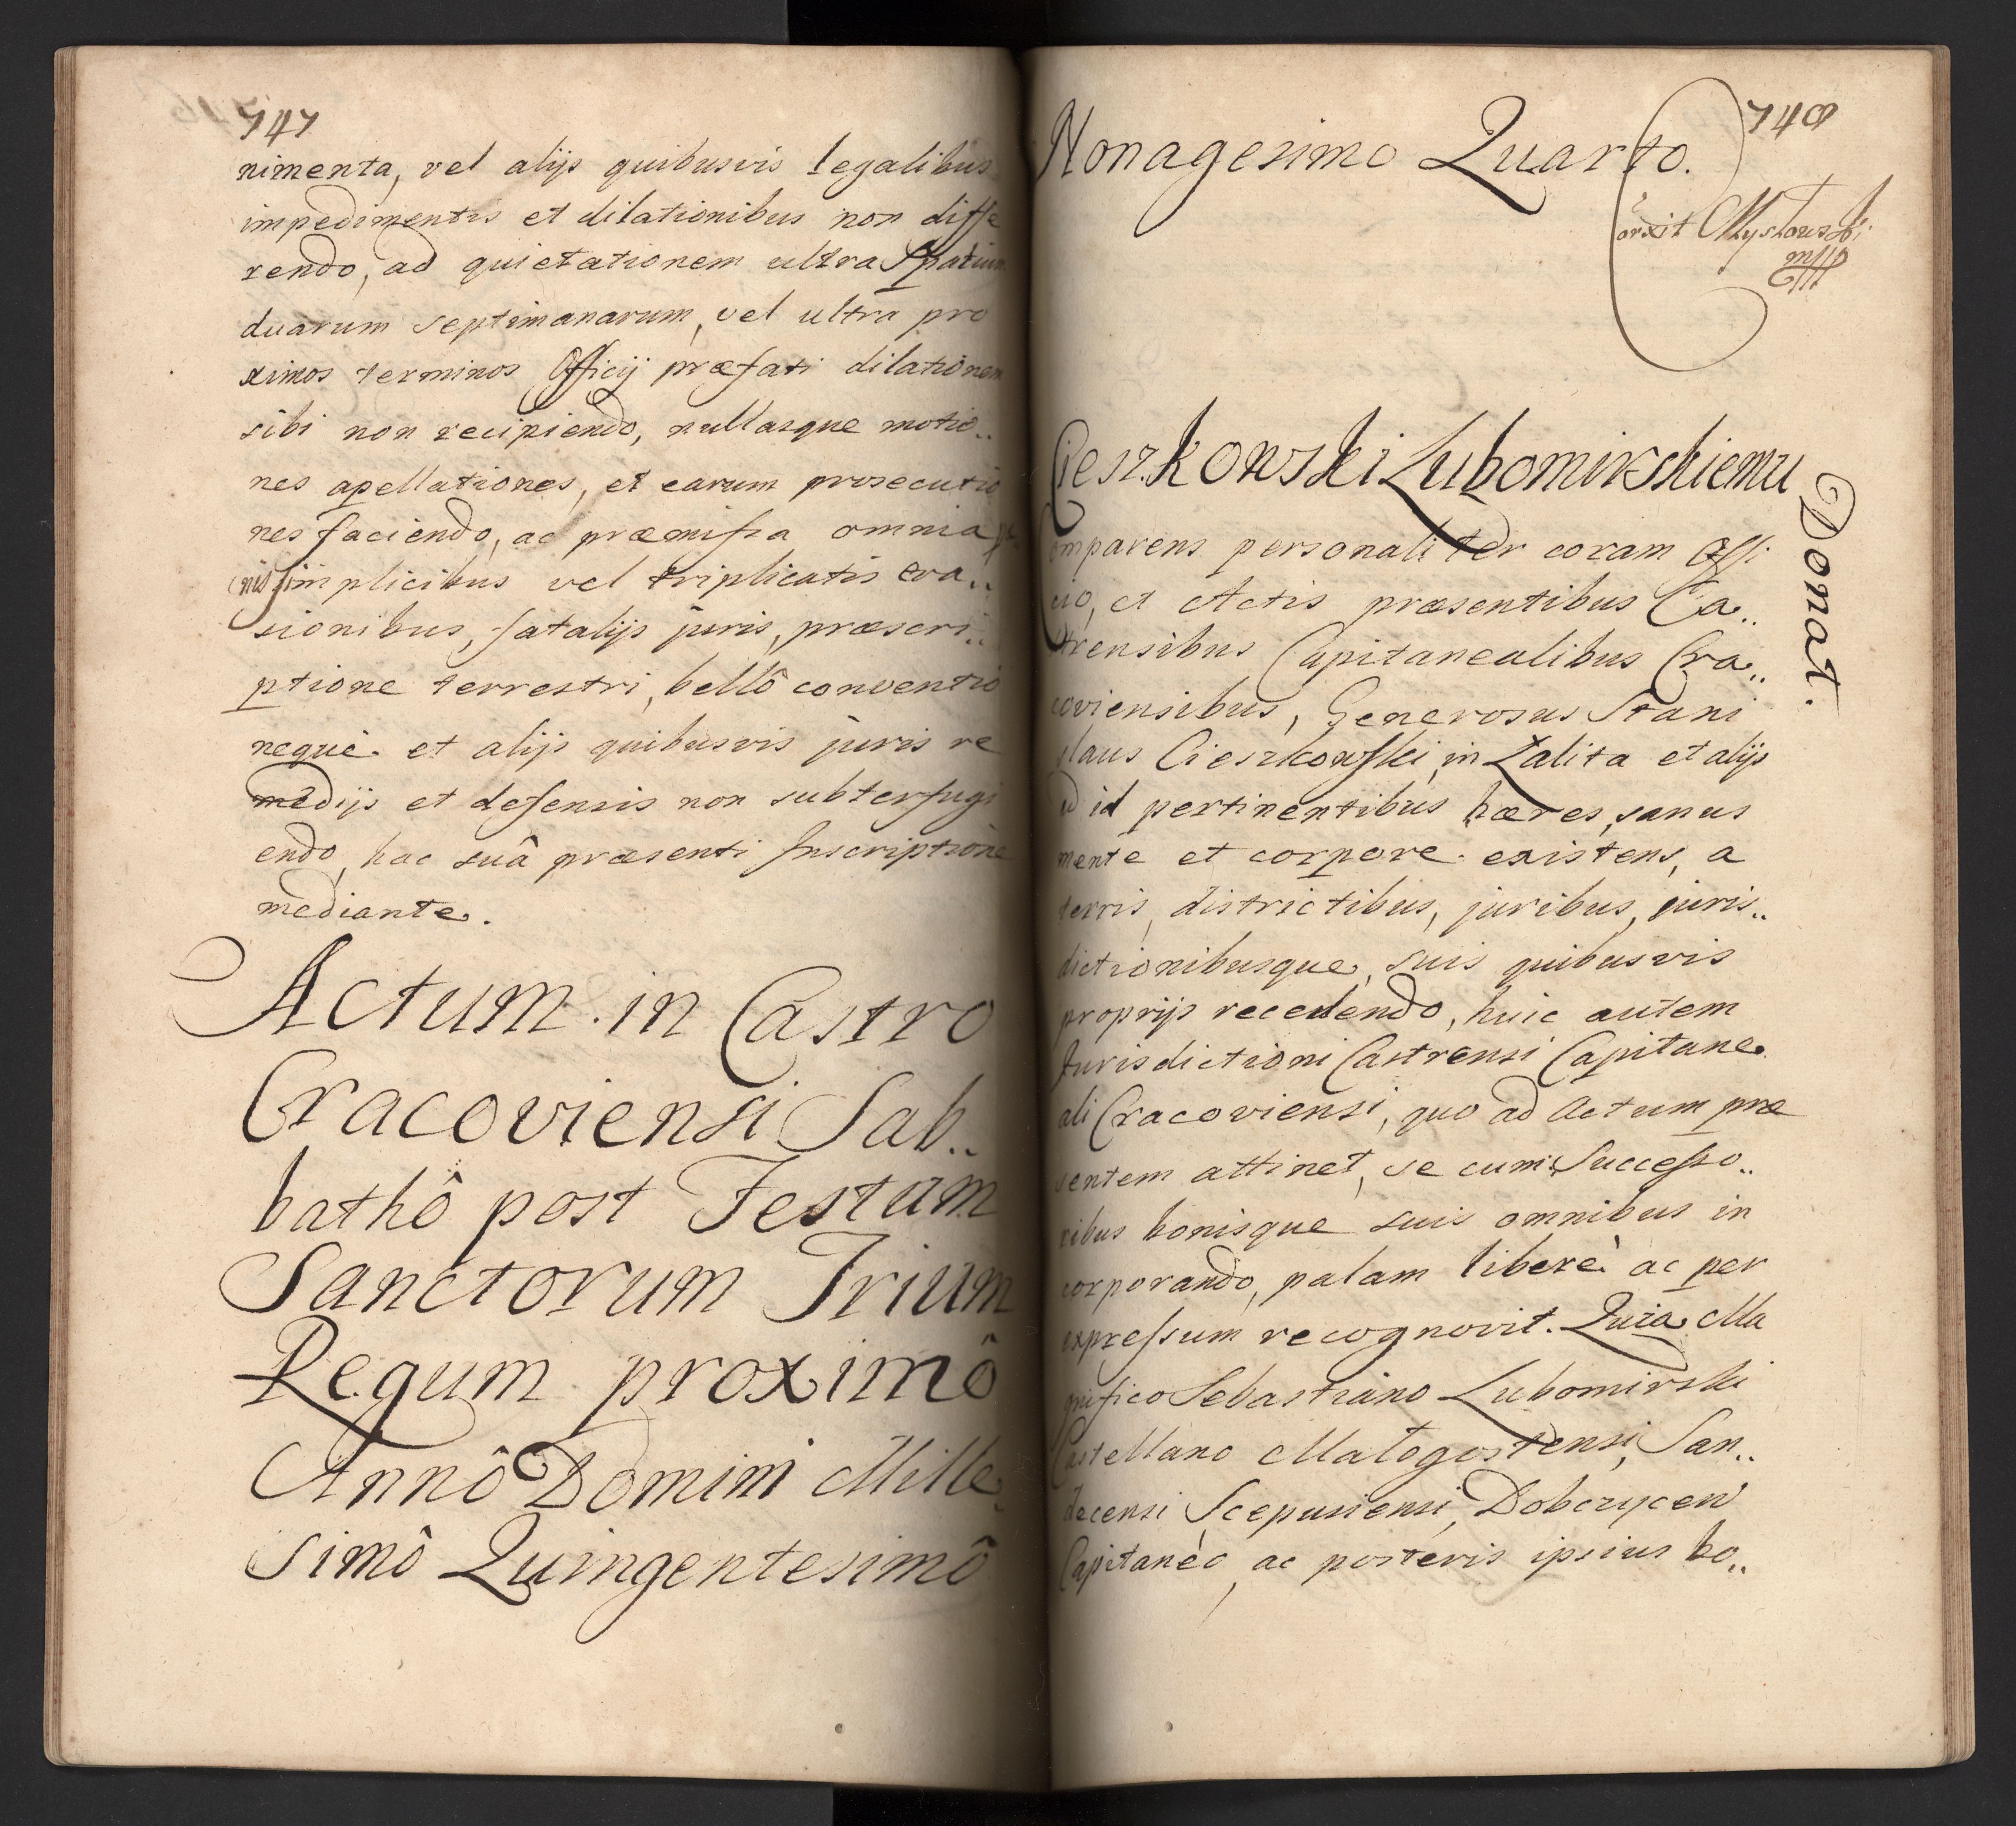 747
nimenta, vel alijs quibusvis legalibus
impedimentis et dilationibus non diffe
rendo, ad quietationem ultra Spatium
duarum septimanarum, vel ultra pro
ximos terminos Officij præfati dilationem
sibi non recipiendo, nullasque motio..
nes apellationes, et earum prosecutio
nes faciendo, ac præmissa omnia
simplicibus vel triplicatis eva..
sionibus, fatalijs juris, præscri..
ptione terrestri, bellô conventio
neque et alijs quibusvis juris re
medijs et defensis non subterfugi
endo, hac suâ præsenti Inscriptione
mediante.
Actum in Castro
Cracoviensi Sab..
bathô post Festum
Sanctorum Trium
Regum proximô
Annô Domini Mille
simô Quingentesimô
748
Nonagesimo Quarto.
Cieszkowski Lubomirskiemu
Donat.
Comparens personaliter coram Offi
cio, et Actis præsentibus Ca..
strensibus Capitanealibus Cra..
coviensibus, Generosus Stani
slaus Cieszkowski, in Zalita et alijs
ad id pertinentibus hæres, sanus
mente et corpore existens, a
terris, districtibus, juribus, juris..
dictionibusque, suis quibusvis
proprijs recedendo, huic autem
Jurisdictioni Castrensi Capitane
ali Cracoviensi, quo ad Actum præ
sentem attinet, se cum Successo..
ribus bonisque suis omnibus in
corporando, palam liberè ac per
expressum recognovit. Quia Ma
gnifico Sebastiano Lubomirski
Castellano Malogostensi, San..
decensi Scepusiensi, Dobczycen
Capitaneo, ac posteris ipsius bo..